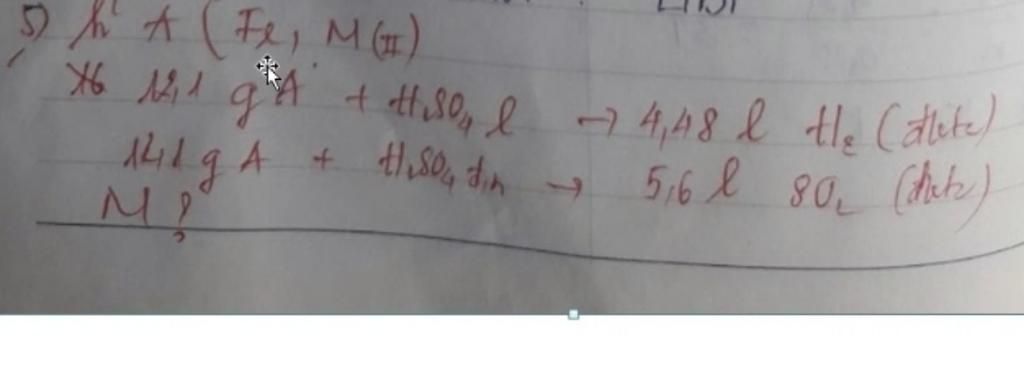 5) h² A (Fe, M(II)
X6 12,1 g A + H₂SO₄ l → 4,48 l H₂ (đktc)
12,1 g A + H₂SO₄ đ,n → 5,6 l SO₂ (đktc)
M ?